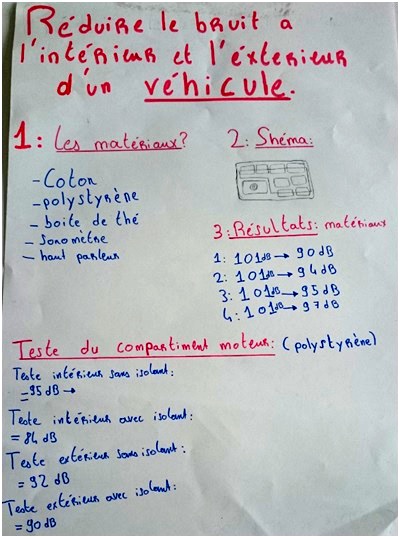 Réduire le bruit a
l'intérieur et l'éxterieur
d'un véhicule.
1: Les matériaux?
- Coton
- polystyrène
- boite de thé
- sonomètre
- haut parleur
2: Shéma:
3: Résultats: matériaux
1: 101dB → 90 dB
2: 101dB → 94 dB
3: 101dB → 95 dB
4: 101dB → 97 dB
Teste du compartiment moteur: (polystyrène)
Teste intérieur sans isolant:
= 95 dB →
Teste intérieur avec isolant:
= 84 dB
Teste extérieur sans isolant:
= 92 dB
Teste extérieur avec isolant:
= 90 dB